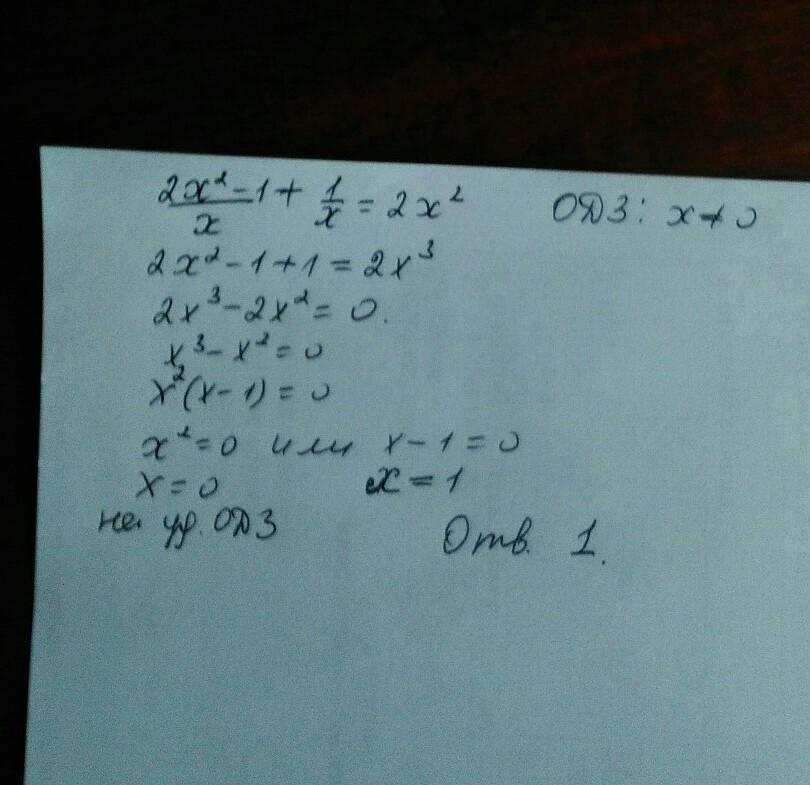 (2x² - 1)/x + 1/x = 2x² ОДЗ: x ≠ 0
2x² - 1 + 1 = 2x³
2x³ - 2x² = 0.
x³ - x² = 0
x²(x - 1) = 0
x² = 0 или x - 1 = 0
x = 0 x = 1
не уд. ОДЗ Отв. 1.